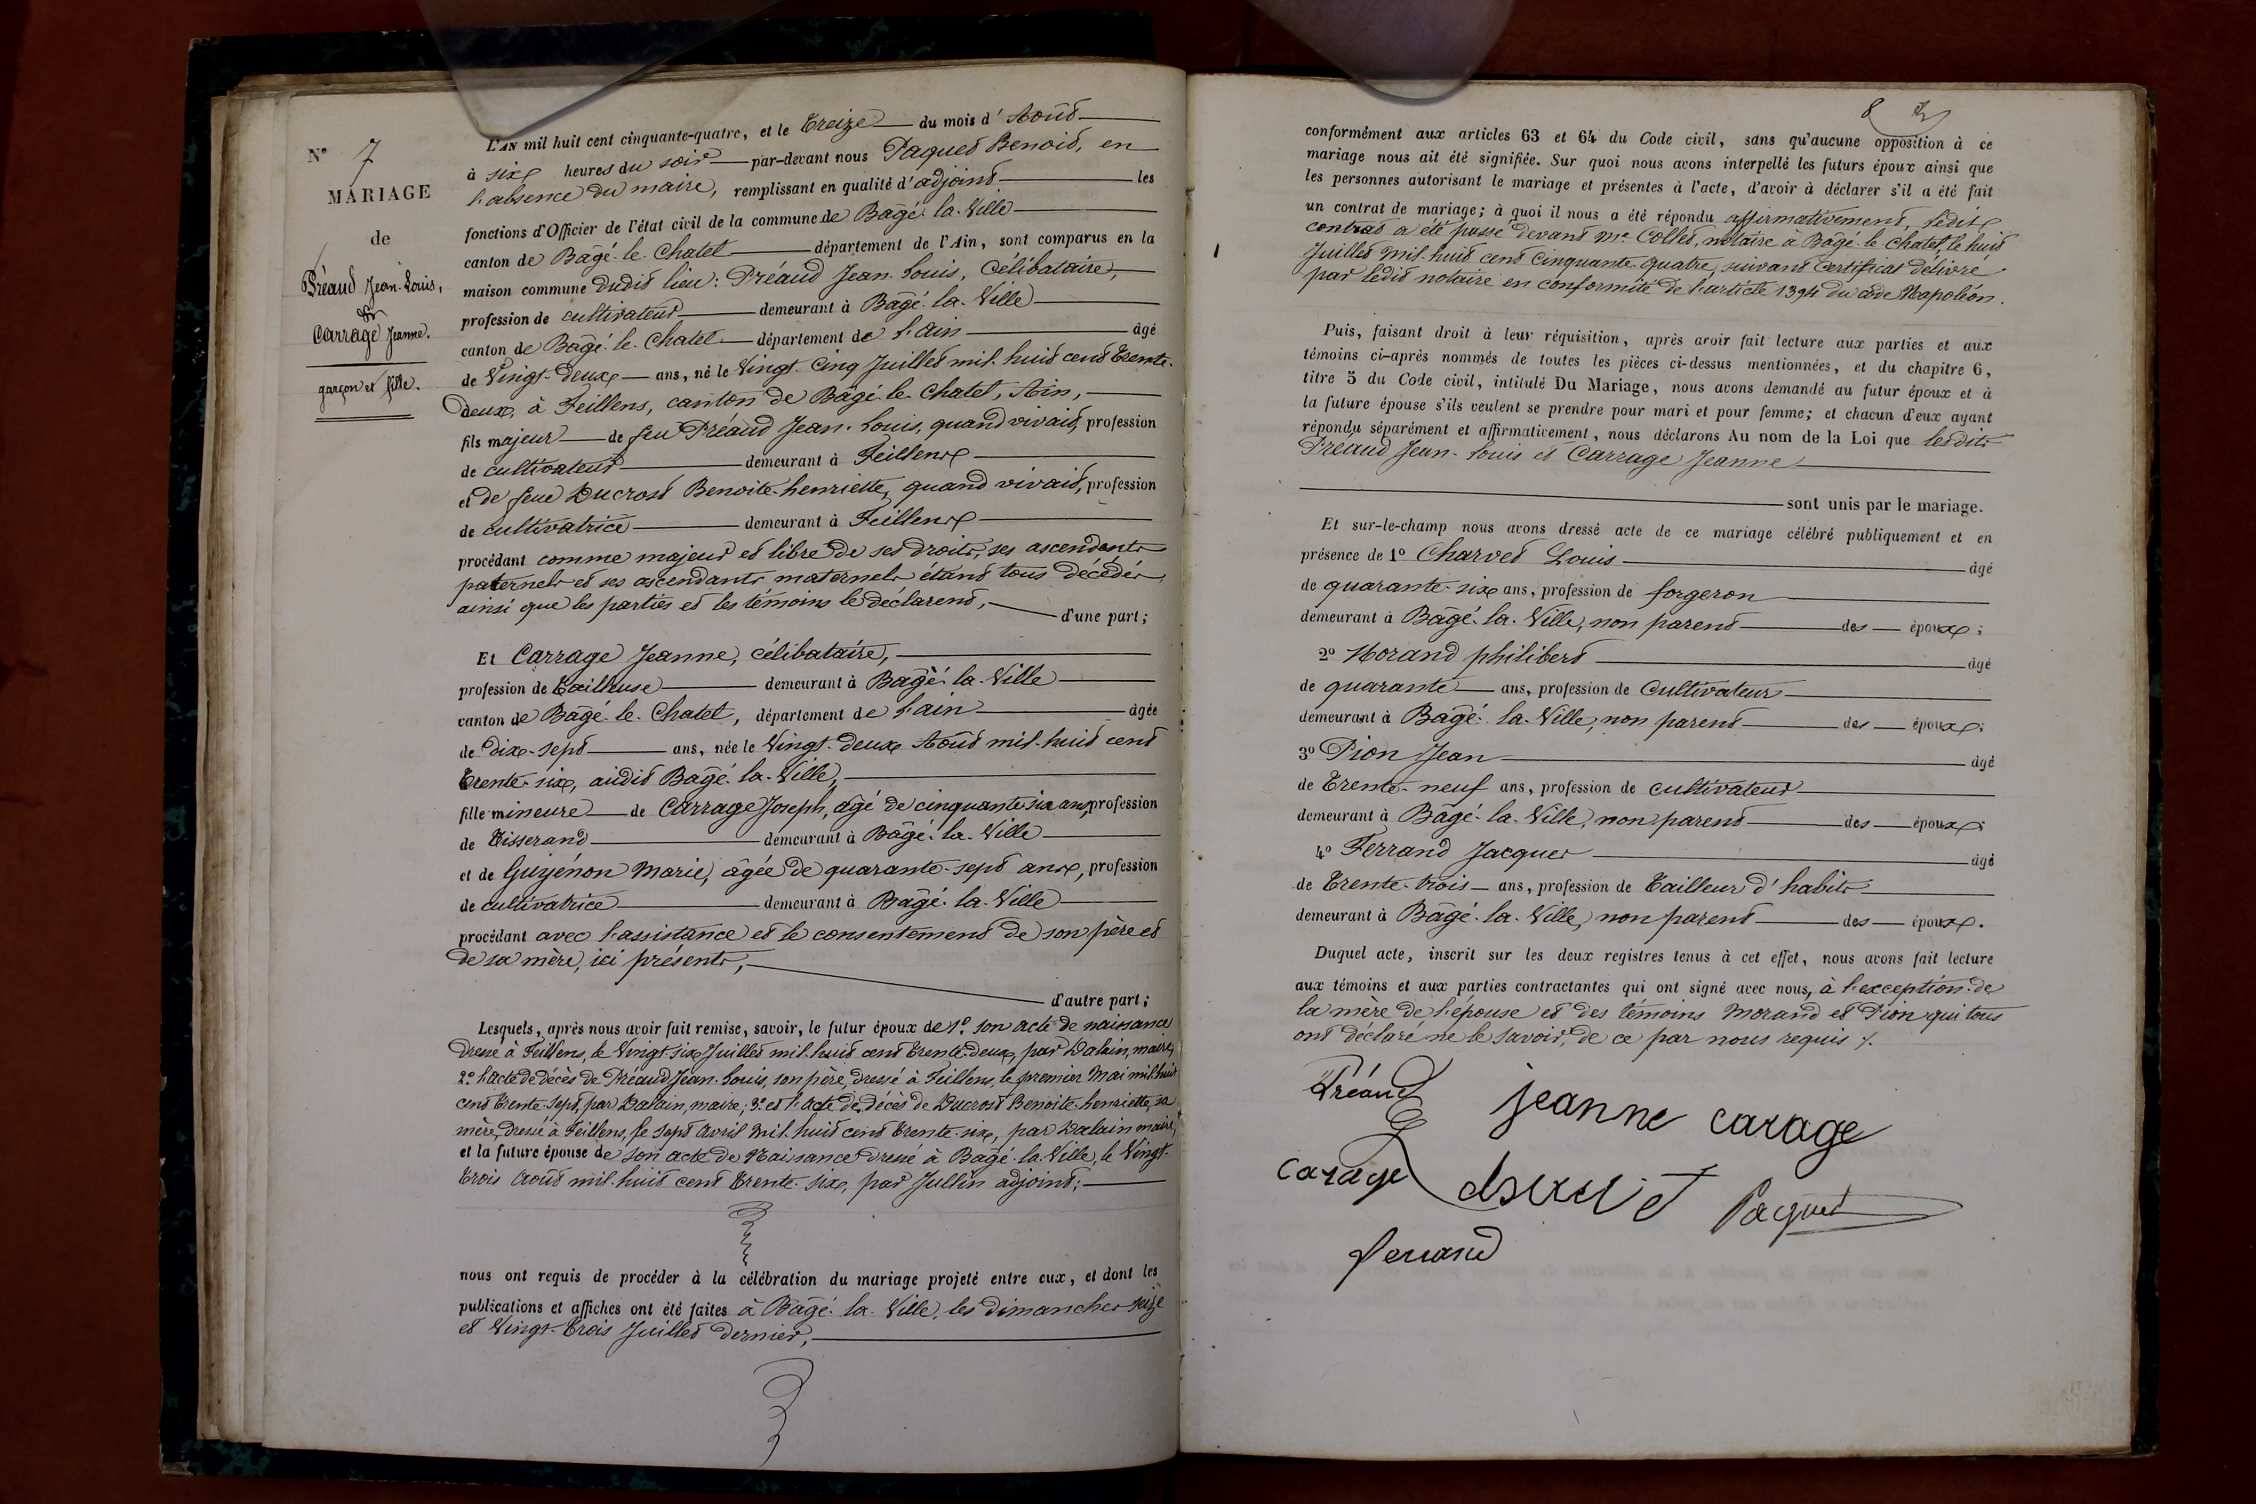 N° 7
MARIAGE
de
Préaud Jean-Louis,
et
Carrage Jeanne.
garçon et fille.
L'AN mil huit cent cinquante-quatre, et le Treize du mois d'Août
à six heures du soir par-devant nous Paquet Benoit, en
l'absence du maire, remplissant en qualité d'adjoint les
fonctions d'Officier de l'état civil de la commune de Bâgé-la-Ville
canton de Bâgé-le-Chatel département de l'Ain, sont comparus en la
maison commune dudit lieu : Préaud Jean-Louis, Célibataire,
profession de cultivateur demeurant à Bâgé-la-Ville
canton de Bâgé-le-Chatel département de l'ain âgé
de Vingt-deux ans, né le Vingt-Cinq Juillet mil-huit cent Trente-
deux, à Feillens, canton de Bâgé-le-Chatel, Ain,
fils majeur de feu Préaud Jean-Louis, quand vivait, profession
de cultivateur demeurant à Feillens
et de feue Ducrost Benoite-henriette, quand vivait, profession
de cultivatrice demeurant à Feillens
procédant comme majeur et libre de ses droits, ses ascendants
paternels et ses ascendants maternels étant tous décédés
ainsi que les parties et les témoins le déclarent, d'une part;
Et Carrage Jeanne, célibataire,
profession de Tailleuse demeurant à Bâgé-la-Ville
canton de Bâgé-le-Chatel, département de l'ain âgée
de dix-sept ans, née le Vingt-deux Août mil-huit cent
Trente-six, audit Bâgé-la-Ville,
fille mineure de Carrage Joseph, âgé de cinquante six ans, profession
de Tisserand demeurant à Bâgé-la-Ville
et de Guyénon Marie, âgée de quarante-sept ans, profession
de cultivatrice demeurant à Bâgé-la-Ville
procédant avec l'assistance et le consentement de son père et
de sa mère, ici présents,
d'autre part;
Lesquels, après nous avoir fait remise, savoir, le futur époux de 1° son acte de naissance
dressé à Feillens, le Vingt-six Juillet mil-huit cent Trente-deux, par Dalain, maire;
2° l'acte de décès de Préaud Jean-Louis, son père, dressé à Feillens, le premier Mai mil-huit
cent Trente-sept, par Dalain, maire; 3° et l'acte de décès de Ducrost Benoite-henriette, sa
mère, dressé à Feillens, le sept avril mil-huit cent trente-six, par Dalain maire;
et la future épouse de son acte de Naissance dressé à Bâgé-la-Ville, le Vingt-
Trois Août mil-huit cent Trente-six, par Jullin adjoint;
nous ont requis de procéder à la célébration du mariage projeté entre eux, et dont les
publications et affiches ont été faites à Bâgé-la-Ville, les dimanches seize
et Vingt-Trois Juillet dernier,
8
conformément aux articles 63 et 64 du Code civil, sans qu'aucune opposition à ce
mariage nous ait été signifiée. Sur quoi nous avons interpellé les futurs époux ainsi que
les personnes autorisant le mariage et présentes à l'acte, d'avoir à déclarer s'il a été fait
un contrat de mariage; à quoi il nous a été répondu affirmativement, ledit
contrat a été passé devant Me Collet, notaire à Bâgé-le-Chatel, le huit
Juillet mil-huit cent Cinquante-quatre, suivant certificat délivré
par ledit notaire en conformité de l'article 1394 du code Napoléon.
Puis, faisant droit à leur réquisition, après avoir fait lecture aux parties et aux
témoins ci-après nommés de toutes les pièces ci-dessus mentionnées, et du chapitre 6,
titre 5 du Code civil, intitulé Du Mariage, nous avons demandé au futur époux et à
la future épouse s'ils veulent se prendre pour mari et pour femme; et chacun d'eux ayant
répondu séparément et affirmativement, nous déclarons Au nom de la Loi que lesdits
Préaud Jean-Louis et Carrage Jeanne
sont unis par le mariage.
Et sur-le-champ nous avons dressé acte de ce mariage célébré publiquement et en
présence de 1° Charvet Louis âgé
de quarante-six ans, profession de forgeron
demeurant à Bâgé-la-Ville, non parent des époux;
2° Morand philibert âgé
de quarante ans, profession de Cultivateur
demeurant à Bâgé-la-Ville, non parent des époux;
3° Pion Jean âgé
de Trente-neuf ans, profession de cultivateur
demeurant à Bâgé-la-Ville, non parent des époux;
4° Ferrand Jacques âgé
de Trente-trois ans, profession de Tailleur d'habits
demeurant à Bâgé-la-Ville, non parent des époux.
Duquel acte, inscrit sur les deux registres tenus à cet effet, nous avons fait lecture
aux témoins et aux parties contractantes qui ont signé avec nous, à l'exception de
la mère de l'épouse et des témoins Morand et Pion qui tous
ont déclaré ne le savoir, de ce par nous requis /.
Préaud
jeanne carage
carage
Paquet
ferrand